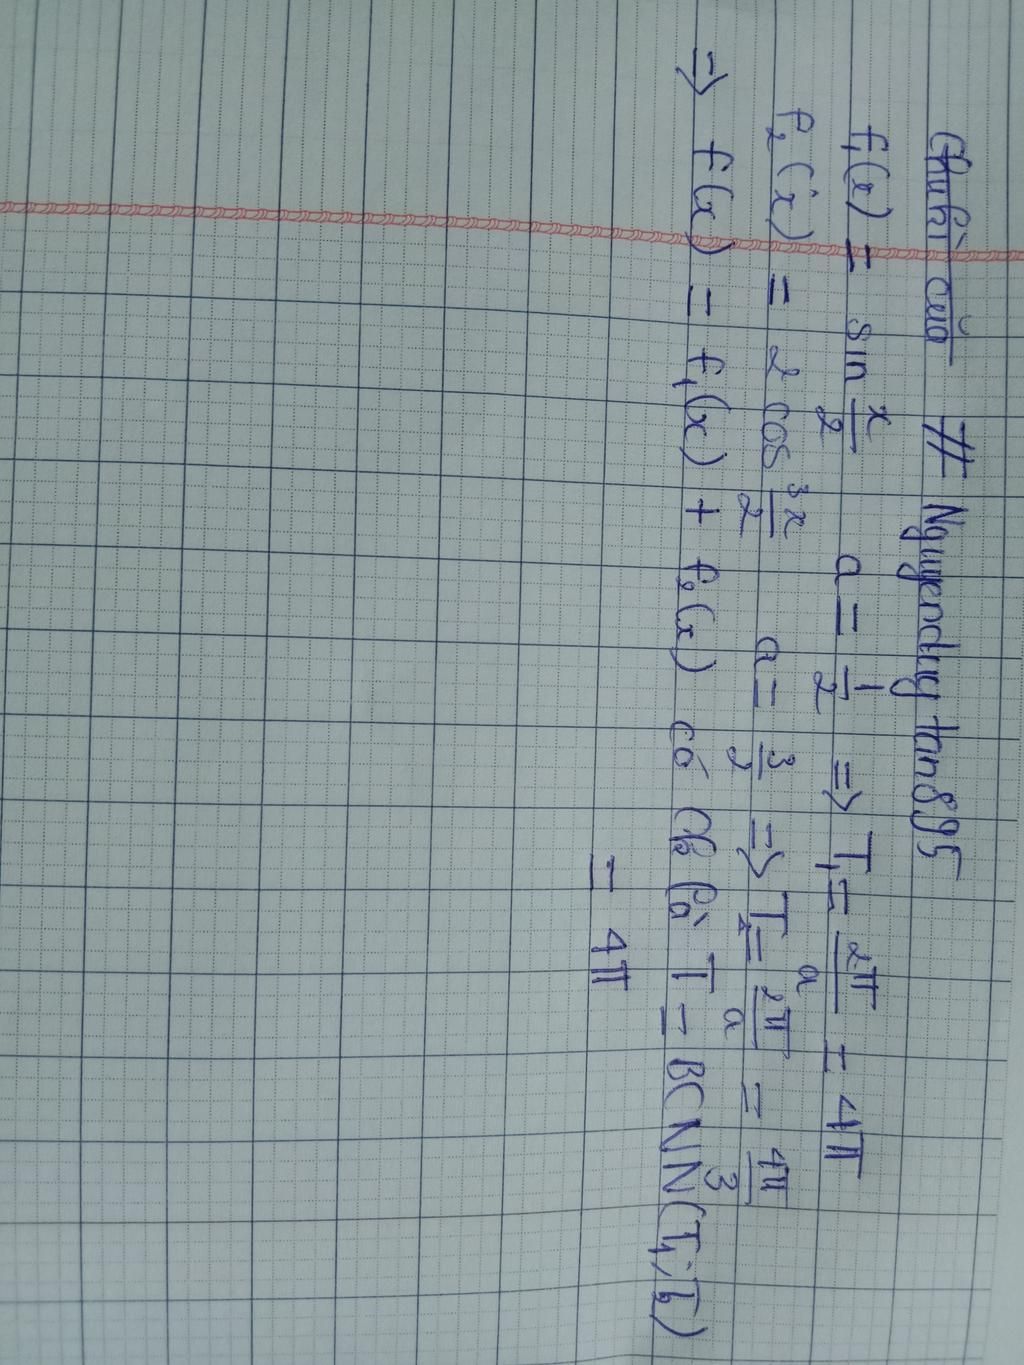 Chu kì của # Nguyenduytan895
f₁(x) = sin x/2 a = 1/2 => T₁ = 2π/a = 4π
f₂(x) = 2 cos 3x/2 a = 3/2 => T₂ = 2π/a = 4π/3
=> f(x) = f₁(x) + f₂(x) có Ck là T = BCNN(T₁; T₂)
= 4π